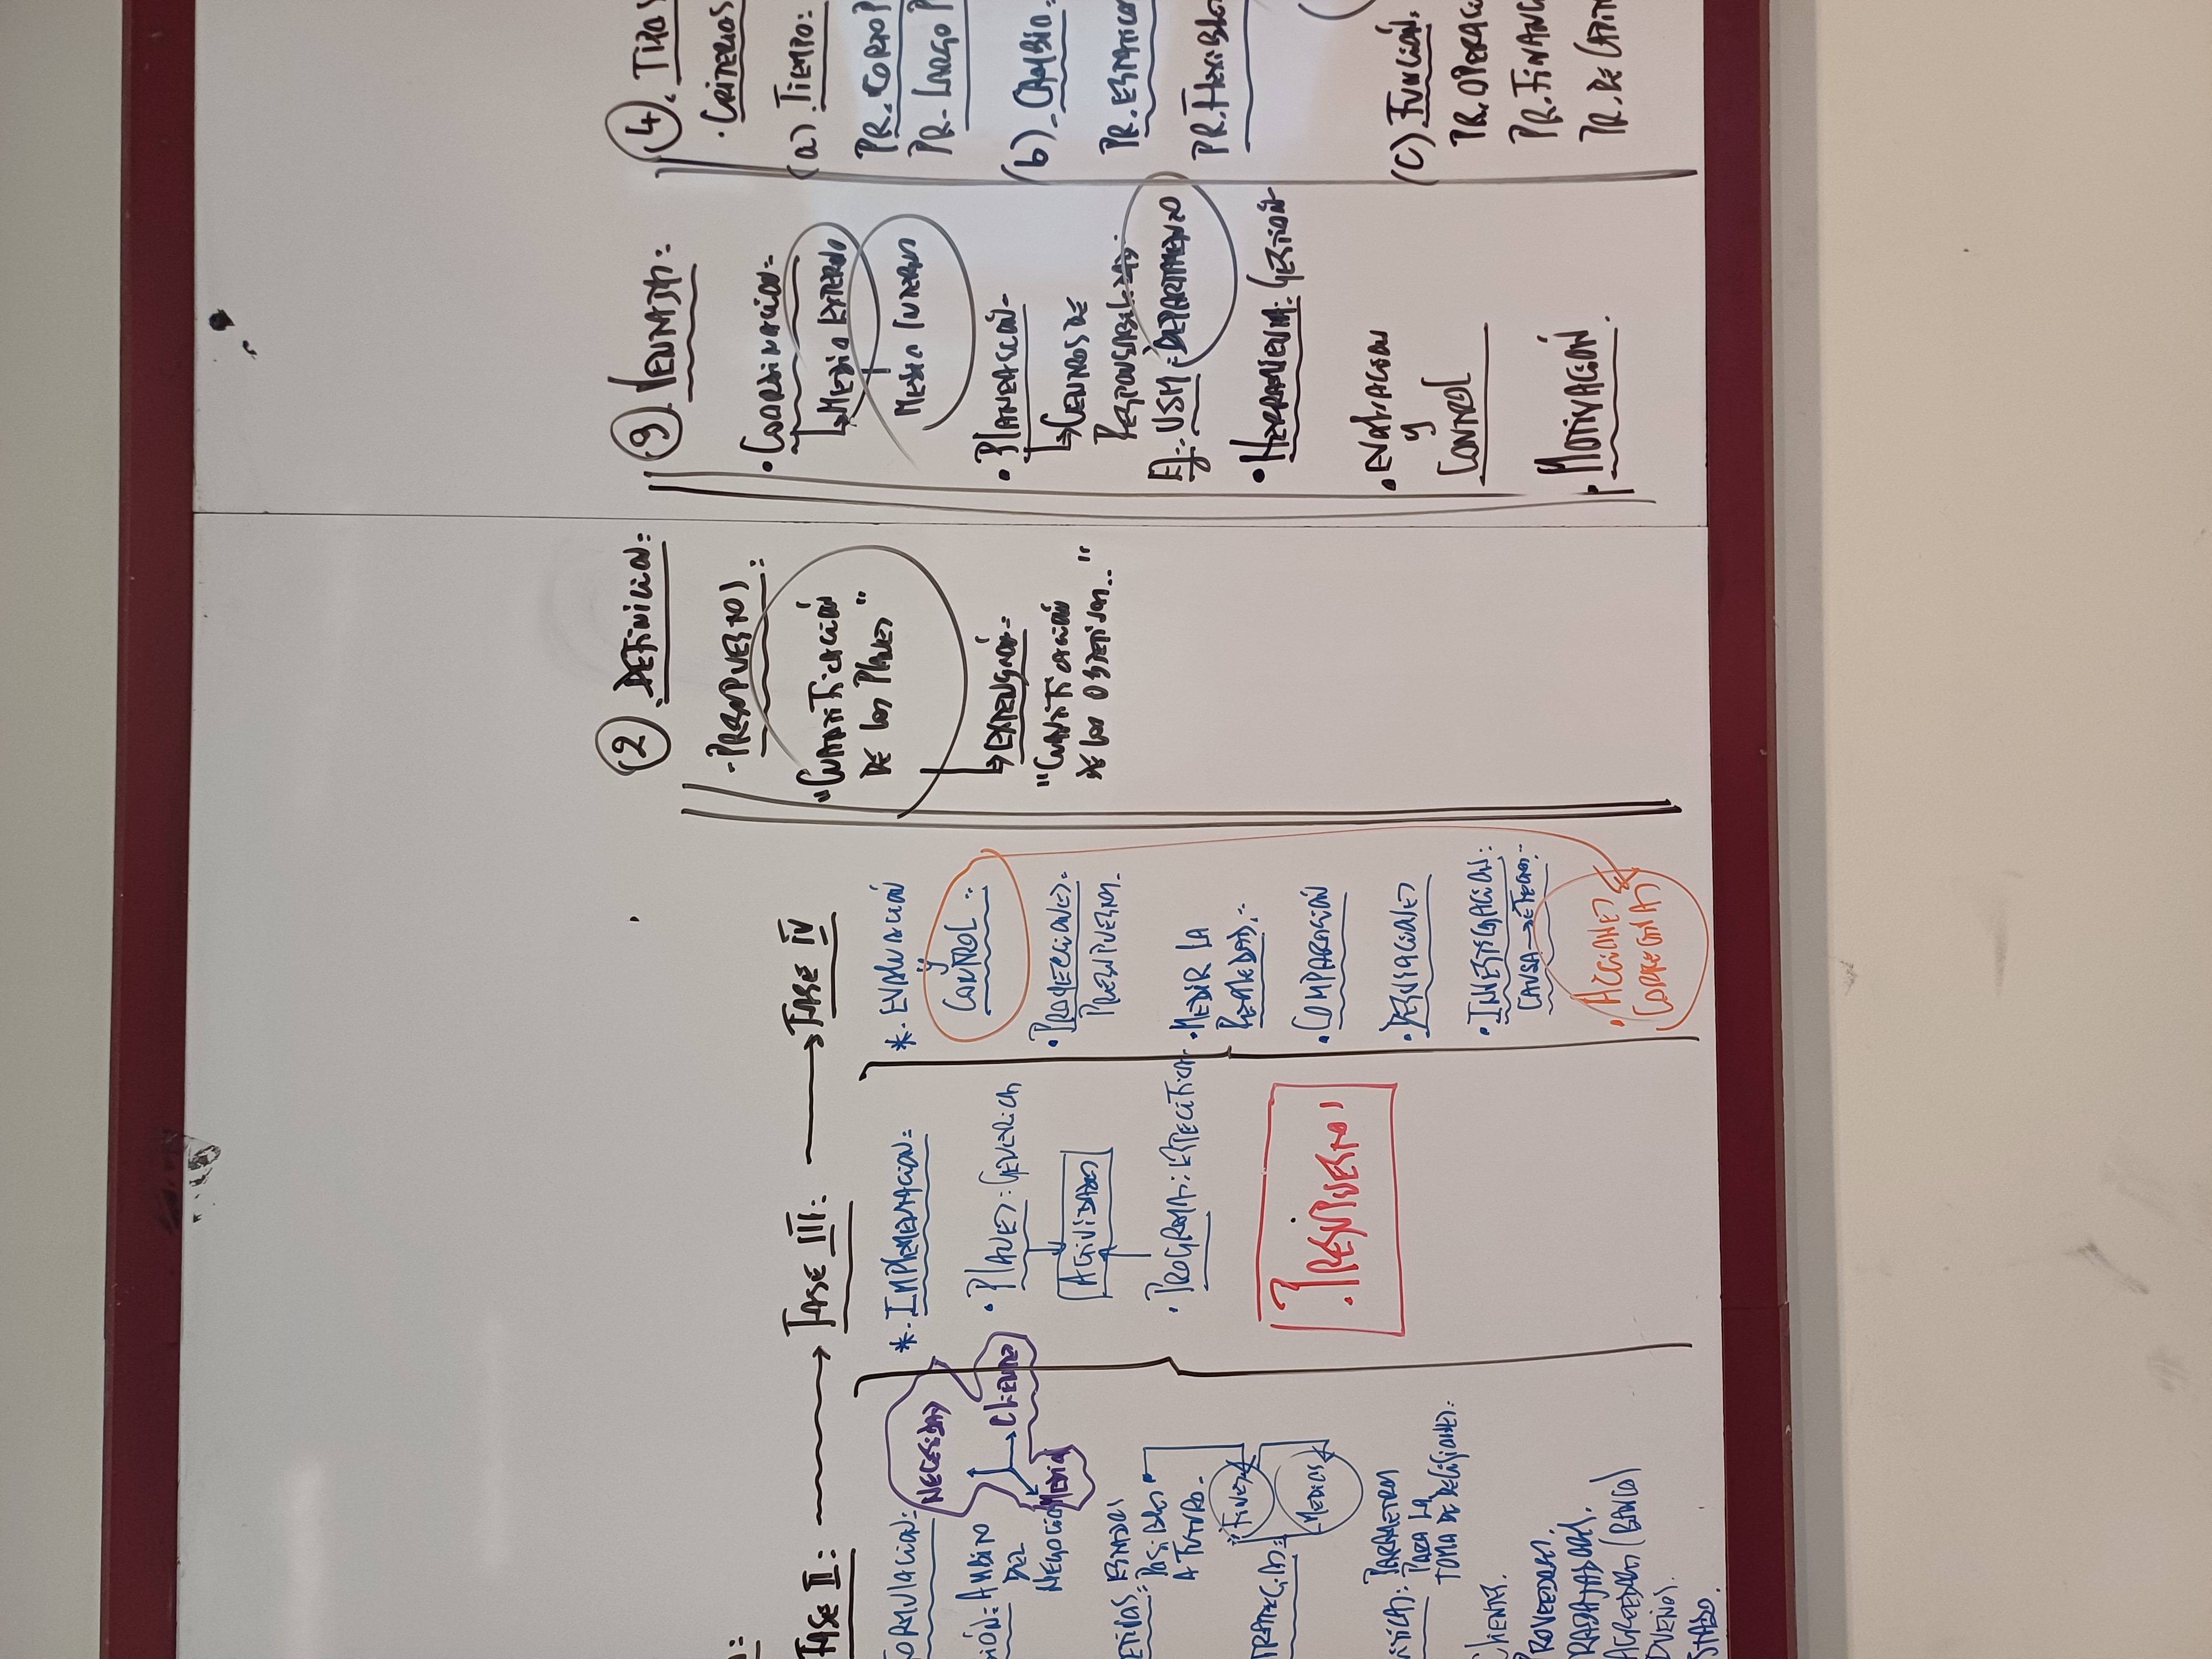 FASE II:
FORMULACION:
NECESIDAD
CLIENTE
MEDIO
SIÓN: AMBITO
DEL
NEGOCIO
ETIVOS: ESTADOS
POSIBLES
A FUTURO.
FINES
TRATEGIAS:
MEDIOS
PARAMETROS
PARA LA
TOMA DE DECISIONES:
CLIENTES.
PROVEEDORES.
RABAJADORES.
ACREEDORES (BANCO)
DUEÑOS.
STADO.
FASE III:
*. IMPLEMENTACION:
• PLANES: GENERICAS
ACTIVIDADES
• PROGRAMAS: ESPECIFICAS
. PRESUPUESTOS
FASE IV
*. EVALUACIÓN
y
CONTROL :
• PROYECCIONES:
PRESUPUESTOS.
• MEDIR LA
REALIDAD.-
• COMPARACIÓN
• DESVIACIONES
• INVESTIGACION:
CAUSA → EFECTOS.-
• ACCIONES
CORRECTIVAS
2. DEFINICION:
- PRESUPUESTOS:
"CUANTIFICACIÓN
DE LOS PLANES"
EXTENSIÓN:
"CUANTIFICACIÓN
DE LOS OBJETIVOS.."
3. VENTAJAS:
• COORDINACION:
MEDIO EXTERNO
MEDIO INTERNO
• PLANEACIÓN-
CENTROS DE
RESPONSABILIDAD:
EJ.: USM: DEPARTAMENTO
• HERRAMIENTA: GESTION
• EVALUACION
y
CONTROL
• MOTIVACIÓN.
4. TIPOS
• CRITERIOS
(a) TIEMPO:
PR. CORTO P
PR. LARGO P
(b). CAMBIO.
PR. ESTATICO
PR. FLEXIBLE
(C) FUNCIÓN.
PR. OPERACI
PR. FINANC
PR. DE CAPIT